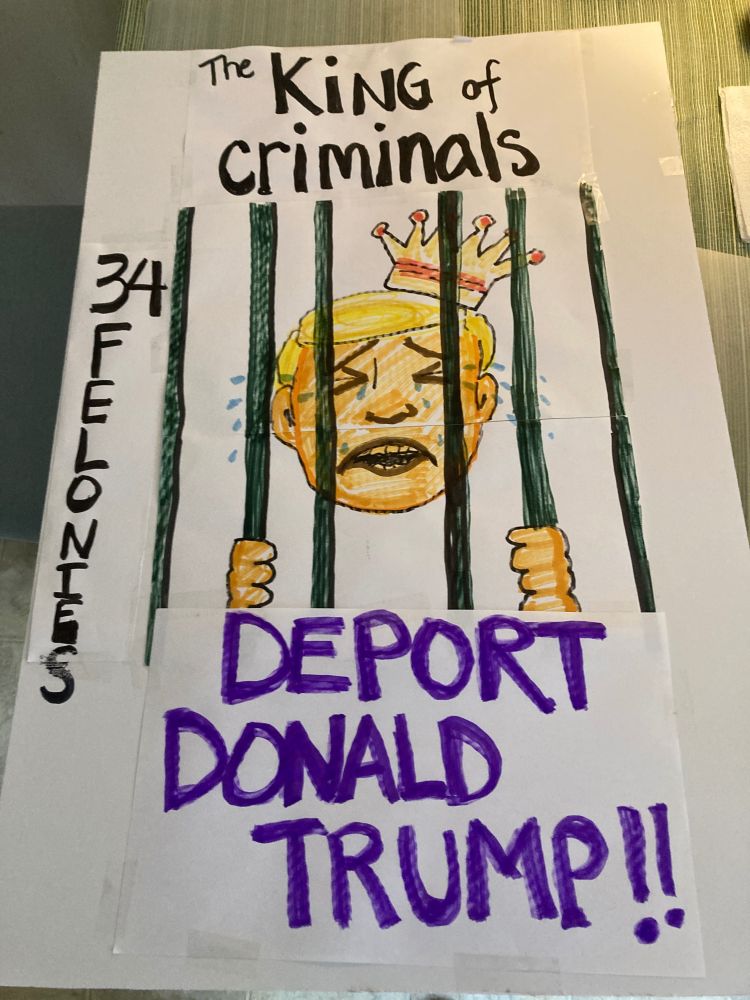 The KiNG of
criminals
34
FELONIES
DEPORT
DONALD
TRUMP!!